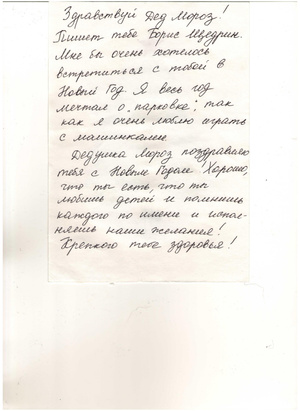 Здравствуй Дед Мороз!
Пишет тебе Борис Щедрин.
Мне бы очень хотелось
встретиться с тобой в
Новый Год. Я весь год
мечтал о „парковке" так
как я очень люблю играть
с машинками.
Дедушка Мороз поздравляю
тебя с Новым Годом! Хорошо,
что ты есть, что ты
любишь детей и помнишь
каждого по имени и испол-
няешь наши желания!
Крепкого тебе здоровья!